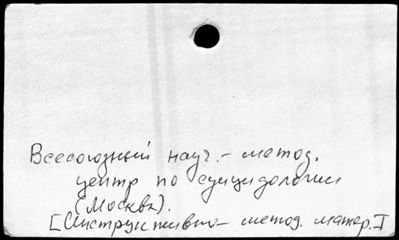 Всесоюзный науч.- метод.
центр по суицидологии
(Москва).
[Инструктивно- метод. матер.]